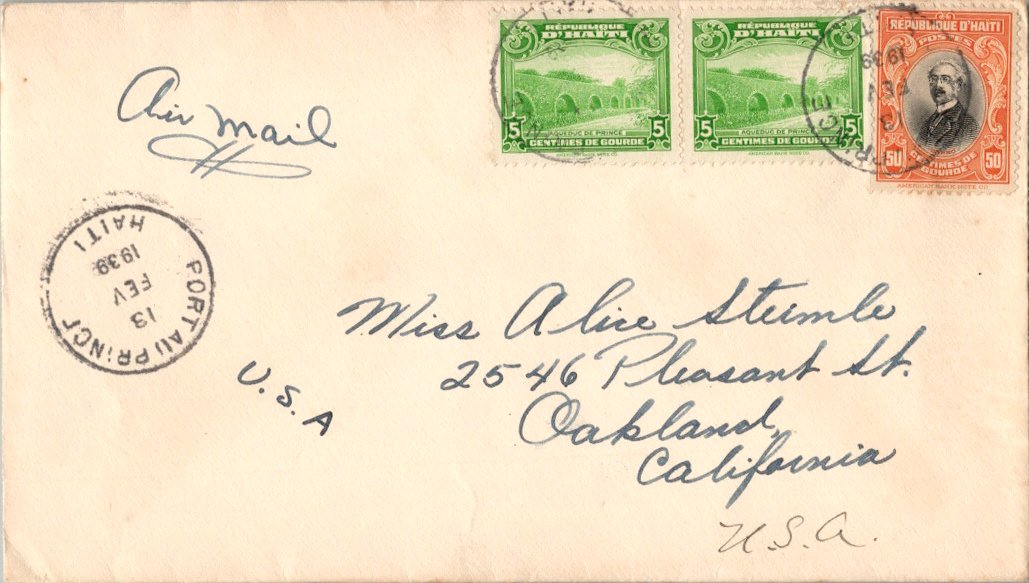 RÉPUBLIQUE
D'HAITI
5 5
AQUEDUC DE PRINCE
CENTIMES DE GOURDE
AMERICAN BANK NOTE CO.
RÉPUBLIQUE
D'HAITI
5
AQUEDUC DE PRINCE
CENTIMES DE GOURDE
AMERICAN BANK NOTE CO.
RÉPUBLIQUE D'HAITI
POSTES
50 50
CENTIMES DE
GOURDE
AMERICAN BANK NOTE CO.
13
FEV
1939
Air Mail
PORT AU PRINCE
13
FEV
1939
HAITI
Miss Alice Steimle
2546 Pleasant St.
Oakland,
California
U.S.A
U.S.A.